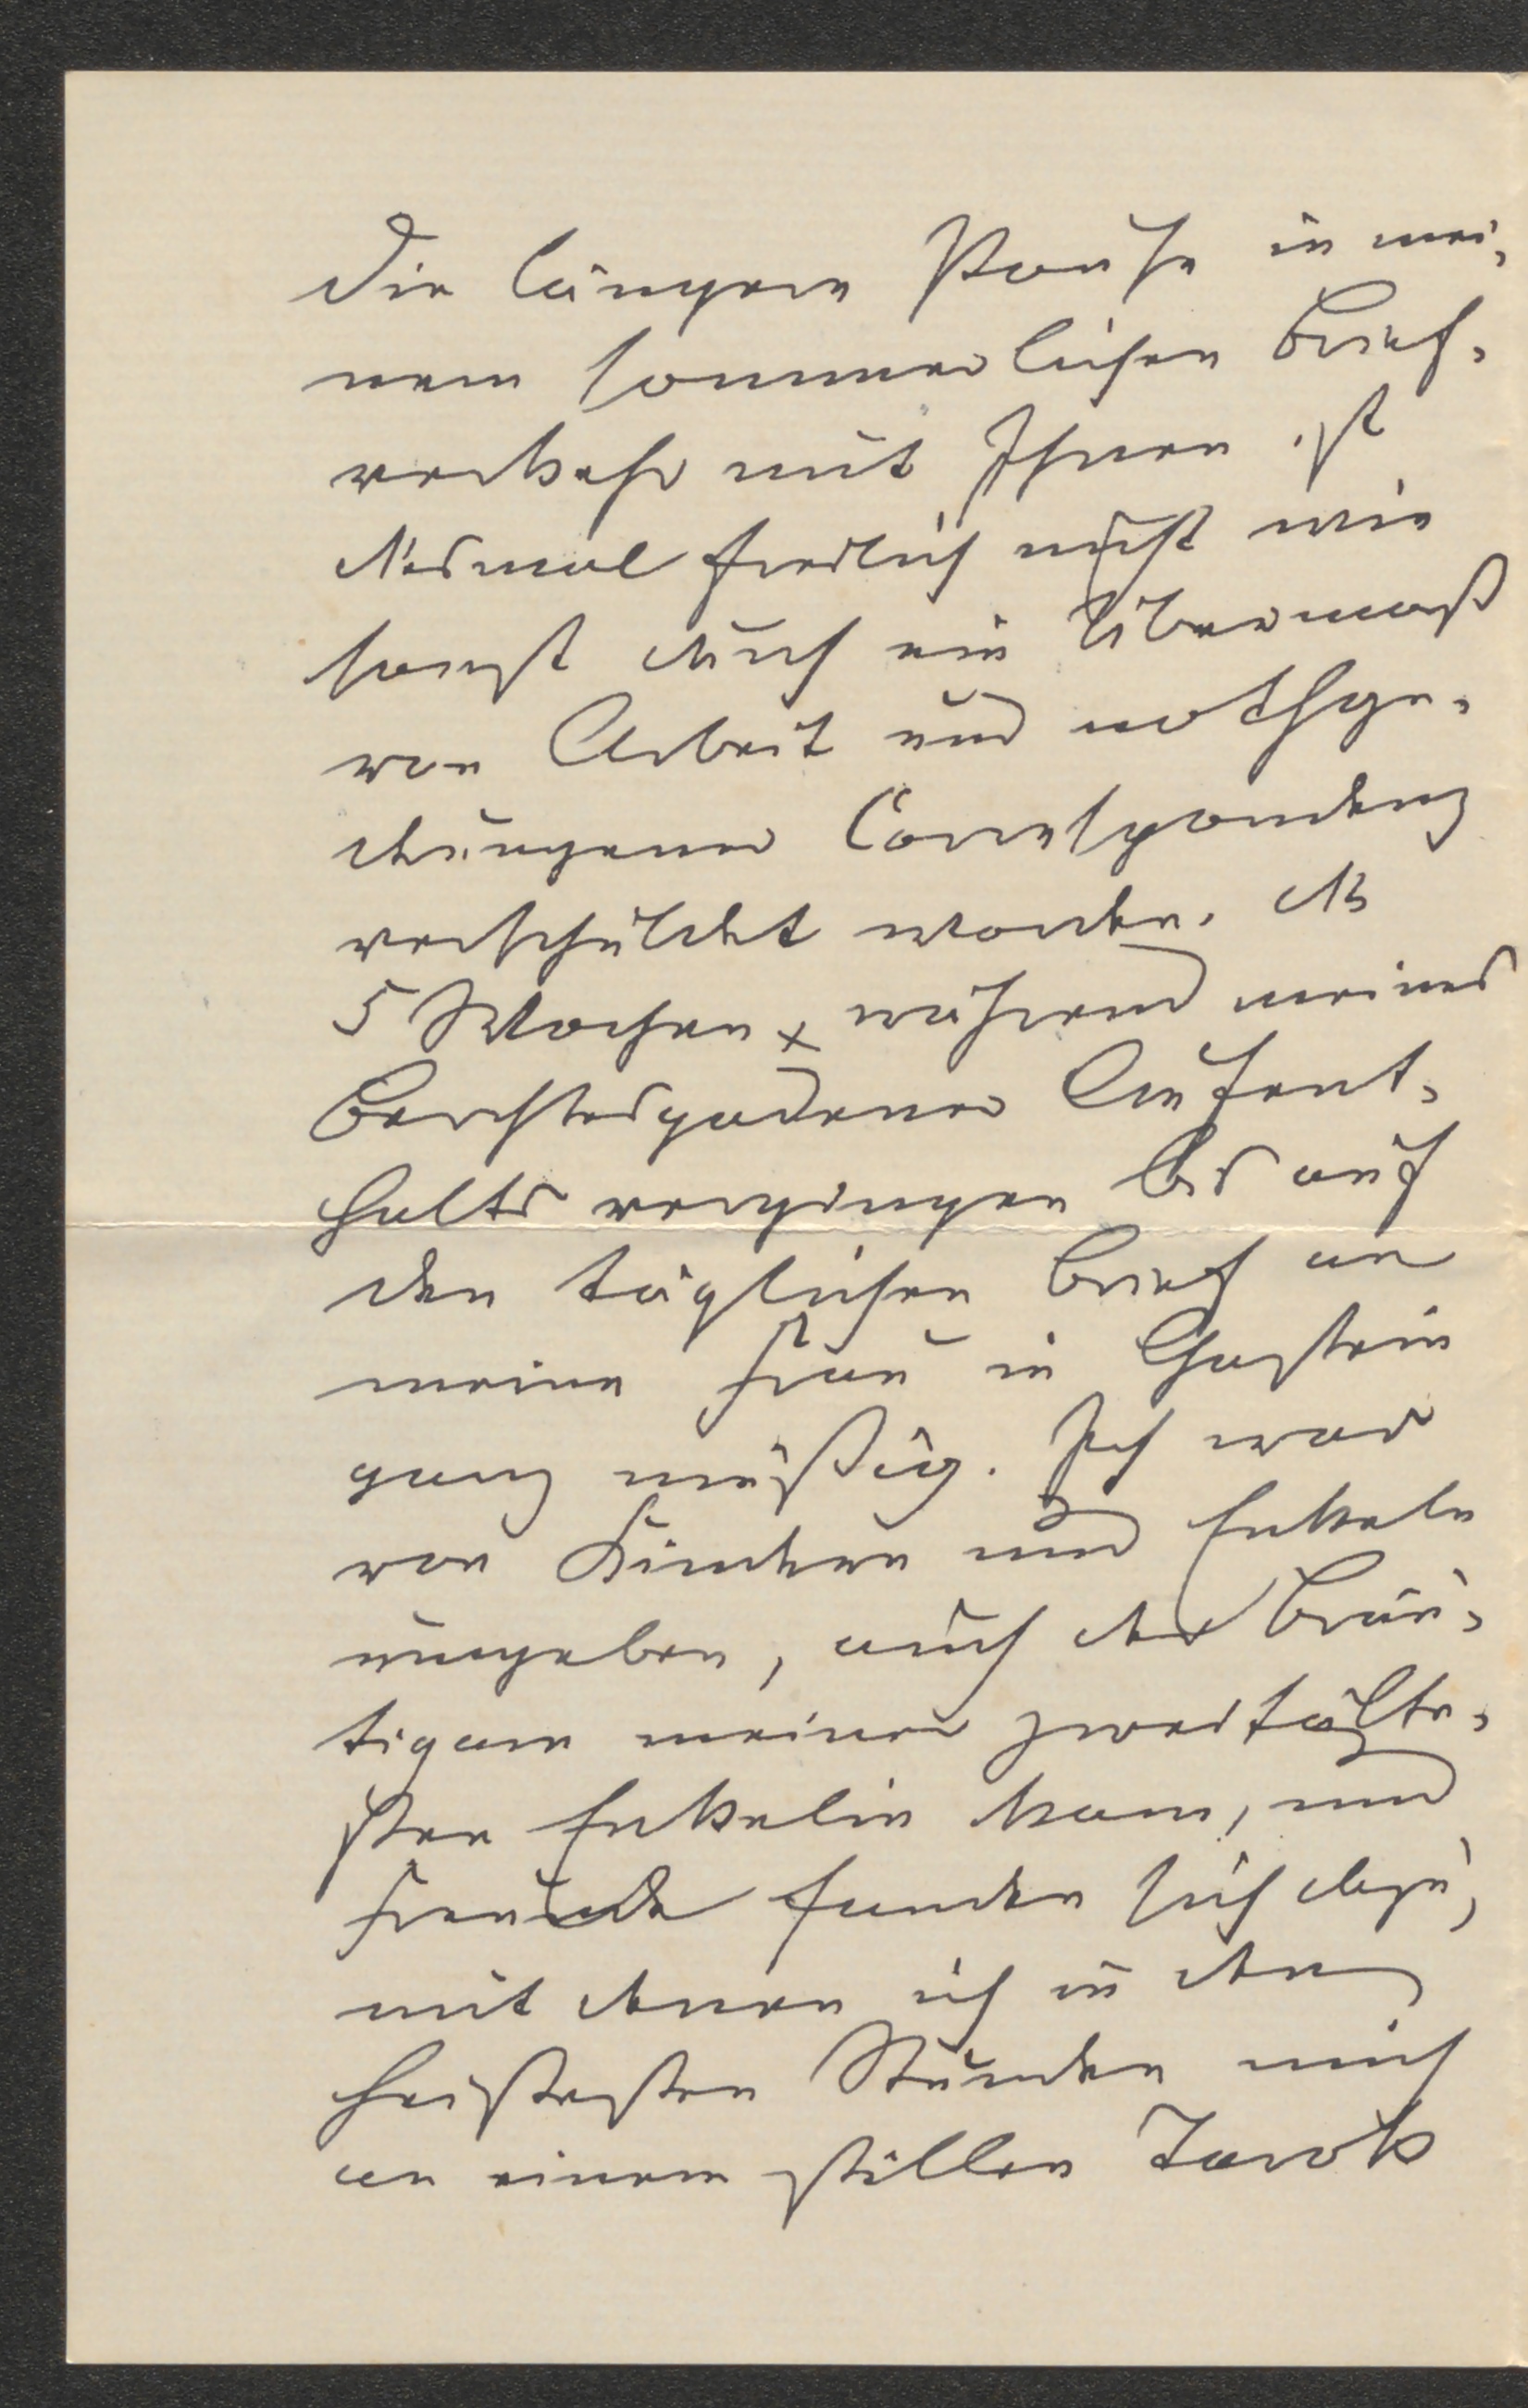 Die längere Pause in mei-
nem sommerlichen Brief-
verkehr mit Ihnen ist
diesmal freilich nicht wie
sonst durch ein Übermaß
von Arbeit und nothge-
drungener Correspondenz
verschuldet worden. Die
5 Wochen x während meines
Berchtesgadener Aufent-
halts vergingen bis auf
den täglichen Brief an
meine Frau in Gastein
ganz müßig. Ich war
von Kindern und Enkeln
umgeben, auch der Bräu-
tigam meiner zweitälte-
sten Enkelin kam, und
Freunde fanden sich dazu,
mit denen ich in den
heißesten Stunden mich
an einem stillen Tarok